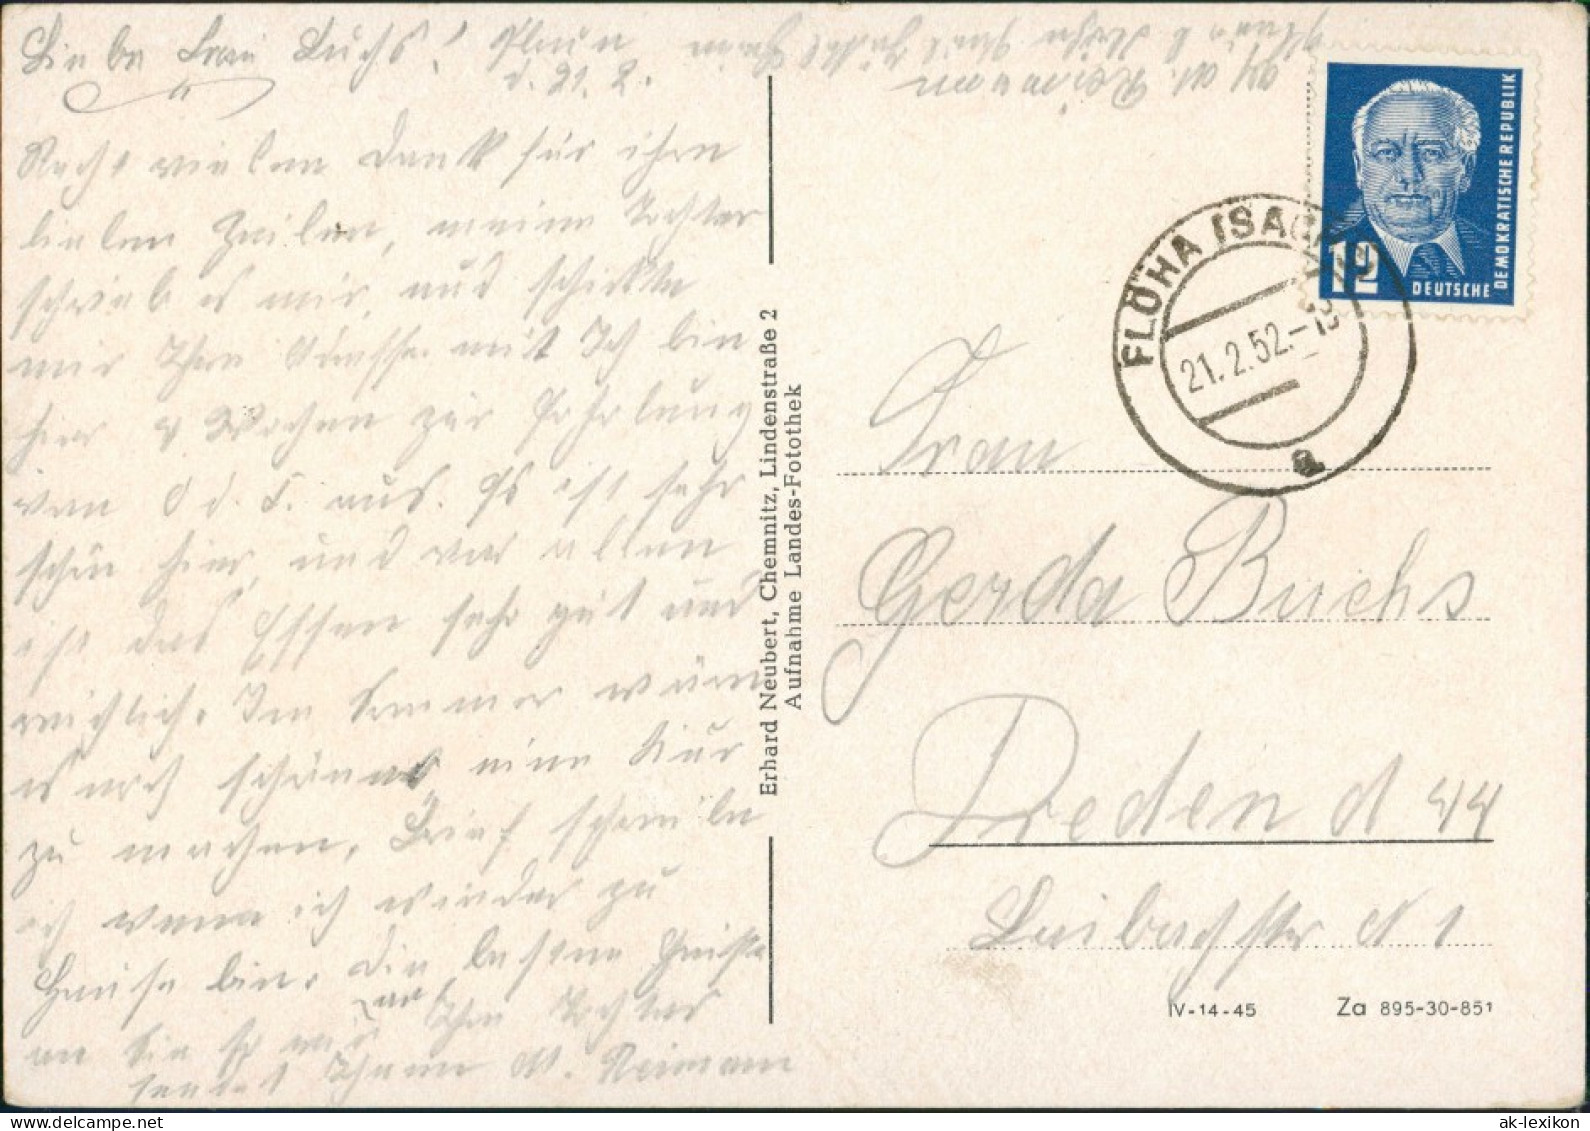 Liebe Frau Buchs! Plaue
d. 21. 2.
Recht vielen Dank für ihre
lieben Zeilen, meine Tochter
schrieb es mir, und schickte
mir Ihre Adresse mit Ich bin
hier 4 Wochen zur Erholung
von O d. F. aus. Es ist sehr
schön hier, und vor allen
ist das Essen sehr gut und
reichlich. Im Sommer wäre
es noch schöner eine Kur
zu machen, Brief schreibe
ich wenn ich wieder zu
Hause bin. Die besten Grüße
an Sie so wie Ihre Tochter
sendet Ihnen M. Reimann
M. Reimann
Erhard Neubert, Chemnitz, Lindenstraße 2
Aufnahme Landes-Fotothek
DEUTSCHE DEMOKRATISCHE REPUBLIK
12
FLÖHA (SACHS)
21.2.52.-18
a
Frau
Gerda Buchs
Dreden A 44
Laibachstr N 1
IV-14-45 Za 895-30-851
ak-lexikon